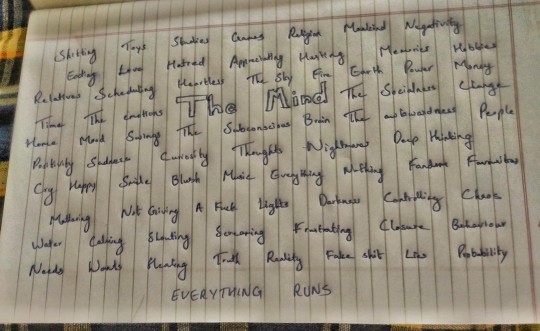 Shitting Toys Studies Games Religion Mankind Negativity
Eating Love Hatred Appreciating Hating Memories Hobbies
Relatives Scheduling Heartless The Sky Fire Earth Power Money
Time The emotions The Mind The Socialness Change
Home Mood Swings The Subconscious Brain The awkwardness People
Positivity Sadness Curiosity Thoughts Nightmares Deep thinking
Cry Happy Smile Blush Music Everything Nothing Fandoms
Not Giving A Fuck Lights Darkness Controlling Chaos
Water Calming Shouting Screaming Frustrating Closure Behaviour
Needs Wants Truth Reality Fake shit Lies Probability
EVERYTHING RUNS